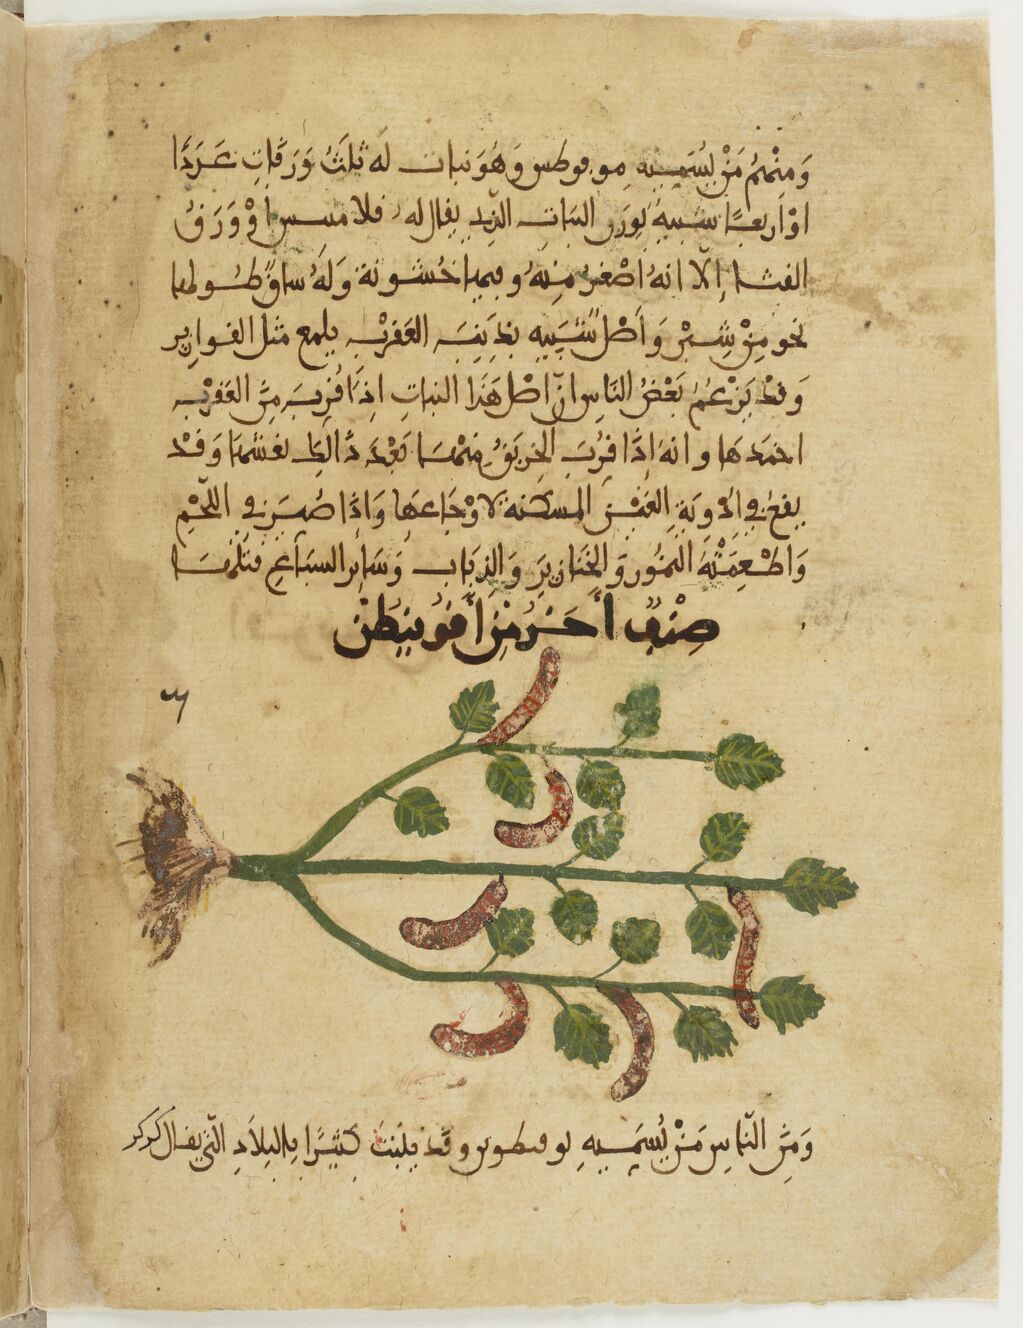 ومنهم من يسميه مو بوطس وهو نبات له ثلث ورقات عددا
او اربعا شبيه بورق النبات الذي يقال له فلامينس او ورق
القثاء إلا انه اصغر منه وفيها خشونة وله ساق طولها
نحو من شبر واصل شبيه بذنب العقرب يلمع مثل القوارير
وقد يزعم بعض الناس ان اصل هذا النبات اذا قرب من العقرب
اخمدها وانه اذا قرب الخربق منها بعد ذالك نعشها وقد
يقع في ادوية العين المسكنة لاوجاعها واذا صير في اللحم
واطعمته النمور والخنازير والذياب وسائر السباع قتلها
صنف أخر من أقونيطن
ومن الناس من يسميه لوقطونن وقد ينبت كثيرا بالبلاد التي يقال